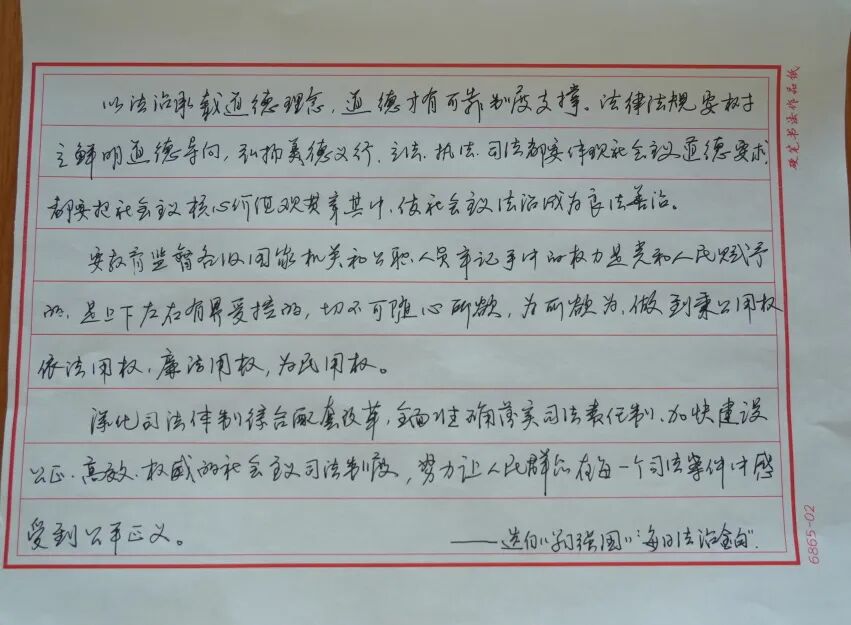 以法治承载道德理念，道德才有可靠制度支撑。法律法规要树
立鲜明道德导向，弘扬美德义行，立法、执法、司法都要体现社会主义道德要求
都要把社会主义核心价值观贯穿其中，使社会主义法治成为良法善治。
要教育监督各级国家机关和公职人员牢记手中的权力是党和人民赋予
的，是上下左右有界受控的，切不可随心所欲，为所欲为，做到秉公用权
依法用权，廉洁用权，为民用权。
深化司法体制综合配套改革，全面准确落实司法责任制，加快建设
公正、高效、权威的社会主义司法制度，努力让人民群众在每一个司法案件中感
受到公平正义。
——选自“学习强国”“每日法治金句”.
硬笔书法作品纸
6865-02